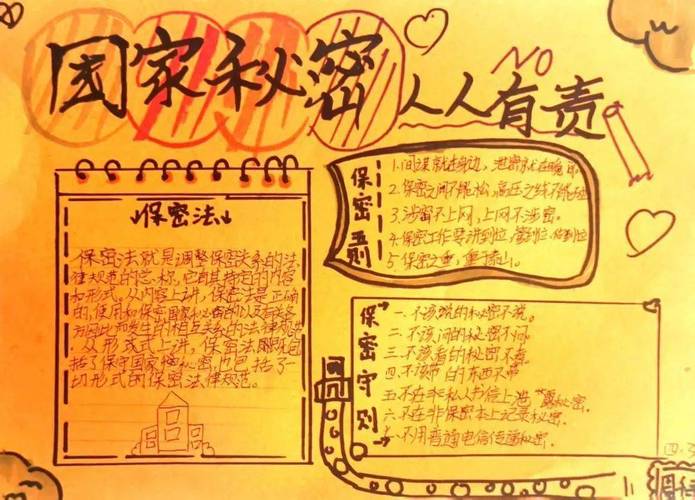 国家秘密 人人有责
NO
保密法
保密法就是调整保密关系的法
律规范的总称,它有其特定的内容
和形式。从内容上讲,保密法是正确
的,使用和保密国家秘密的以及有关各
方因此而发生的相互关系的法律规范
从形式上讲,保密法既包
括了保守国家秘密,也包括了一
切形式的保密法律规范。
保密五则
1.间谍就在身边,泄密就在瞬间。
2.保密之间不能松,高压之线不能碰
3.涉密不上网,上网不涉密。
4.保密工作要讲到位,管到位,做到位
5.保密之重,重于泰山。
保密守则
一.不该说的秘密不说。
二.不该问的秘密不问。
三.不该看的秘密不看。
四.不该带的东西不带
五.不在非私人书信上泄露秘密.
六.不在非保密本上记录秘密.
七.不用普通电信传递秘密.
四.3